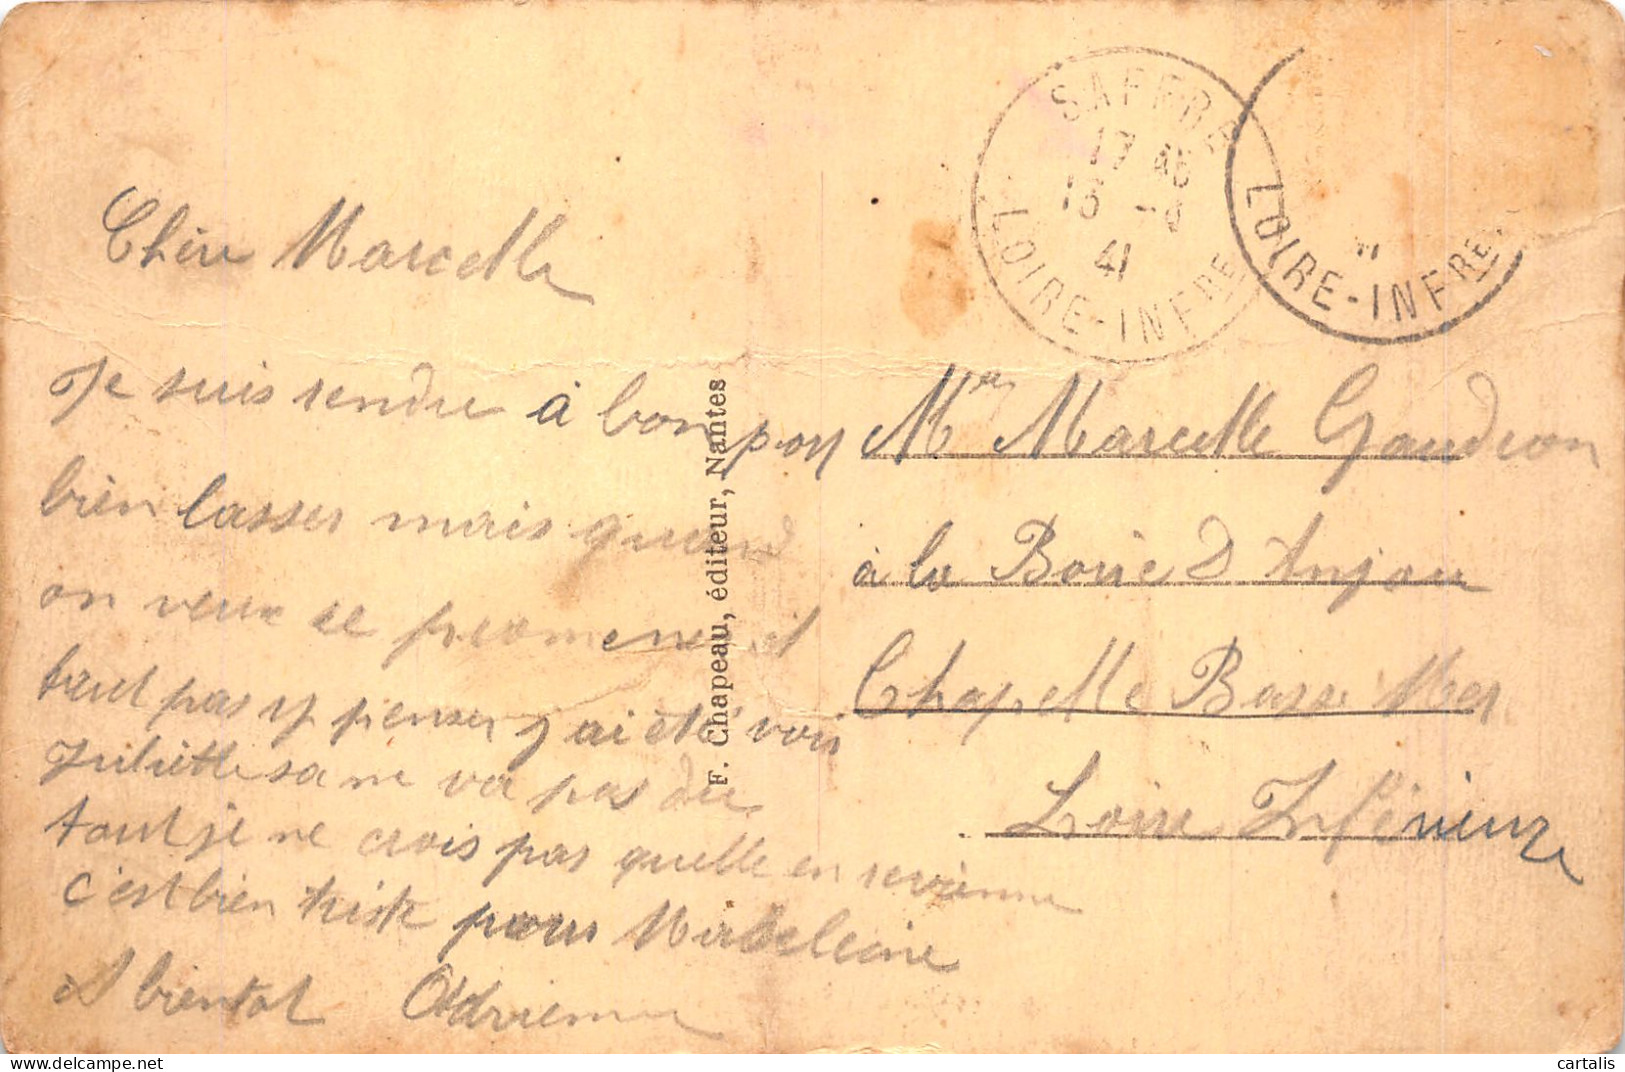 SAFFRE
17 45
13 -8
41
LOIRE-INFRE
LOIRE-INFRE
Chère Marcelle
Je suis rendue à bon por
bien lasser mais quand
on veux se promener il
faut pas y penser j'ai été voir
Juliette sa ne va pas du
tout je ne crois pas quelle en revienne
c'est bien triste pour Madeleine
A bientot Adrienne
F. Chapeau, éditeur, Nantes
Marcelle Gaudron
à la Boire D Anjou
Chapelle Basse Mer
Loire Inférieure
cartalis